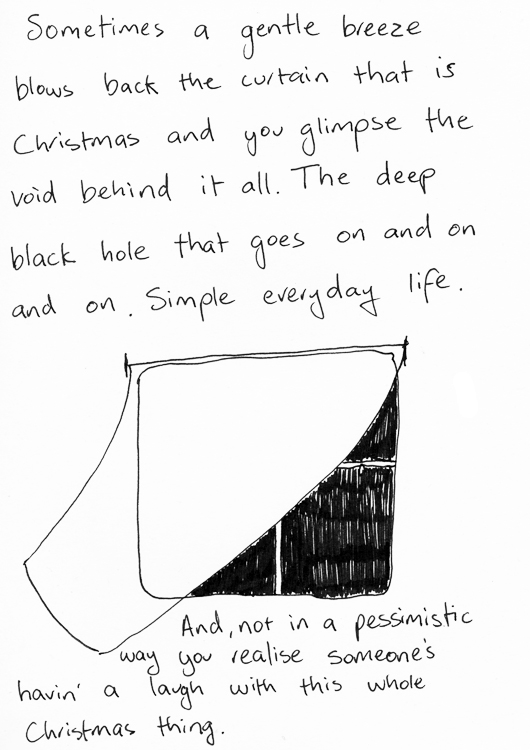 Sometimes a gentle breeze
blows back the curtain that is
Christmas and you glimpse the
void behind it all. The deep
black hole that goes on and on
and on. Simple everyday life.
And, not in a pessimistic
way you realise someone's
havin' a laugh with this whole
Christmas thing.